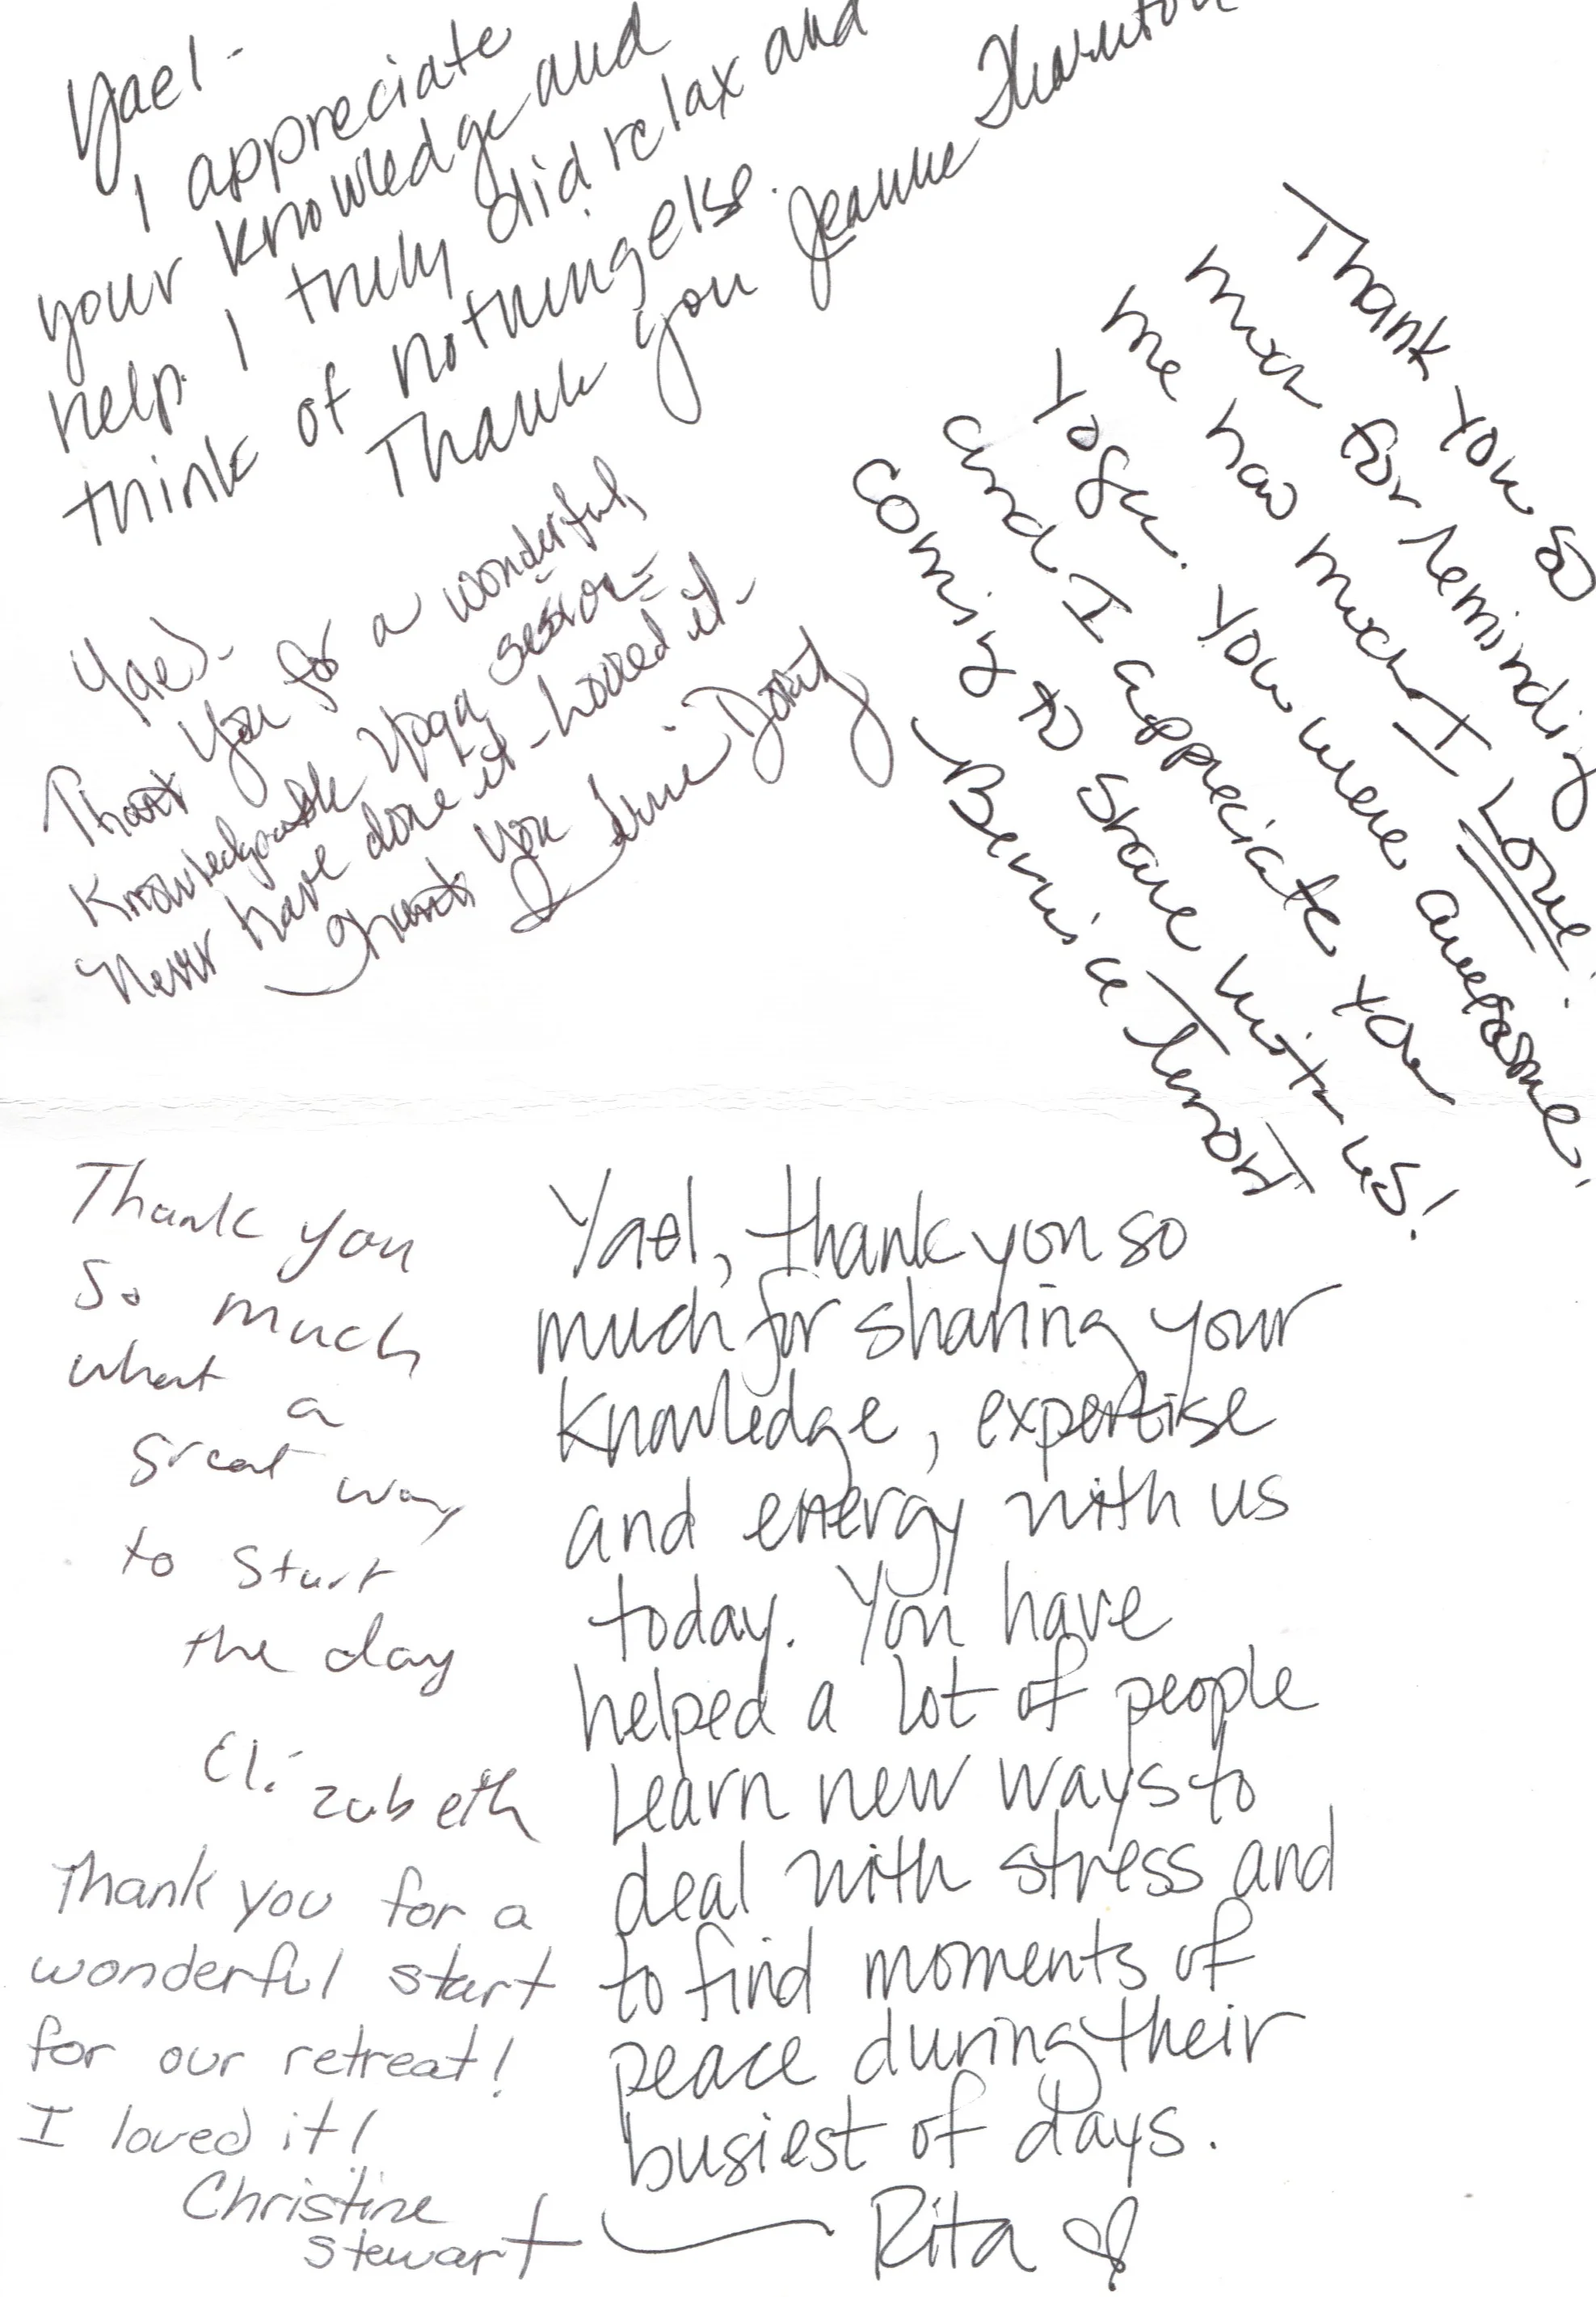 Yael -
I appreciate
your knowledge and
help. I truly did relax and
think of nothing else.
Thank you Jeanne Thornton
Thank you so
much for reminding
me how much I Love
Yoga. You were awesome,
and I appreciate you
coming to share with us!
Bernice
Yael -
Thank you for a wonderful,
Knowledgeable Yoga session
Never have done it - loved it -
Thank you
Thank you
So much
what a
great way
to start
the day
Elizabeth
Thank you for a
wonderful start
for our retreat!
I loved it!
Christine
Stewart
Yael, thank you so
much for sharing your
knowledge, expertise
and energy with us
today. You have
helped a lot of people
Learn new ways to
deal with stress and
to find moments of
peace during their
busiest of days.
Rita